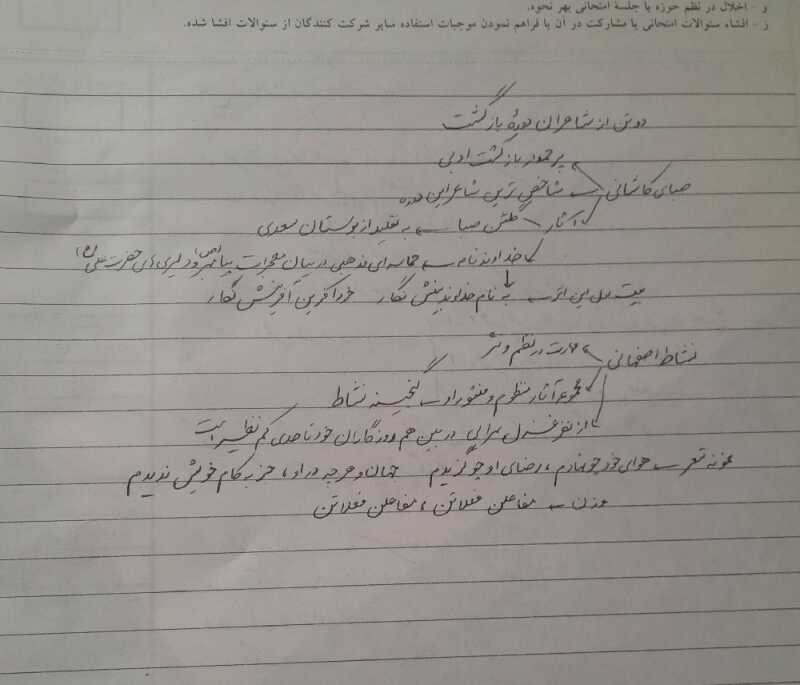 و - اخلال در نظم حوزه یا جلسهٔ امتحانی بهر نحوه.
ز - افشاء سئوالات امتحانی یا مشارکت در آن یا فراهم نمودن موجبات استفاده سایر شرکت کنندگان از سئوالات افشا شده.
دو تن از شاعران دورهٔ بازگشت
پرچمدار بازگشت ادبی
صبای کاشانی شاخص ترین شاعر این دوره
آثار گلشن صبا به تقلید از بوستان سعدی
خداوندنامه حماسه ای مذهبی در بیان معجزات پیامبر (ص) و دلیری های حضرت علی (ع)
بیت اول این اثر به نام خداوند بینش نگار خرد آفرین آفرینش نگار
نشاط اصفهانی مهارت در نظم و نثر
مجموعه آثار منظوم و منثور او گنجینه نشاط
از نظر غزل سرایی در بین هم روزگاران خود تا حدی کم نظیر است
نمونه شعر هوای خود چو نهادم، رضای او چو گزیدم جهان و هرچه در او، جز به کام خویش ندیدم
وزن مفاعلن فعلاتن، مفاعلن فعلاتن